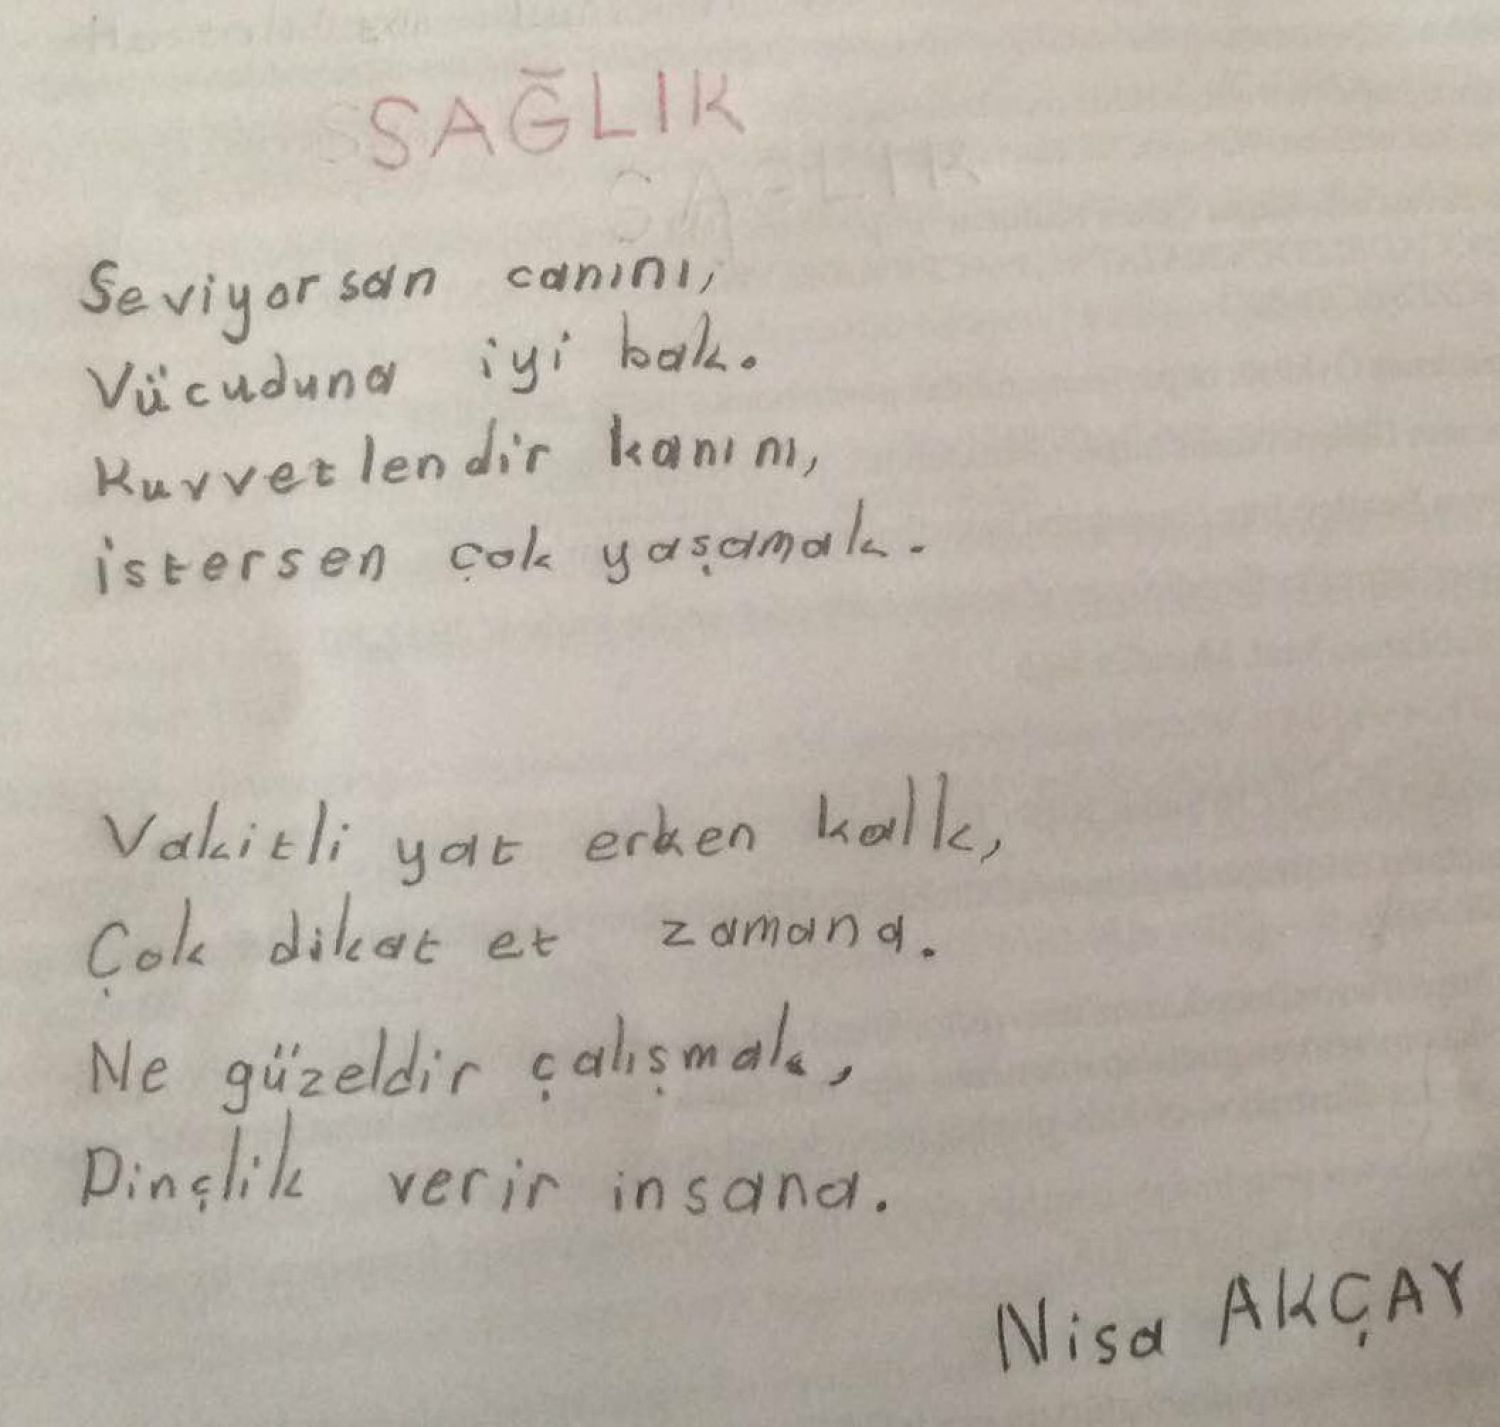 SAĞLIK
Seviyorsan canını,
Vücuduna iyi bak.
Kuvvetlendir kanını,
istersen çok yaşamak.
Vakitli yat erken kalk,
Çok dikat et zamana.
Ne güzeldir çalışmak,
Dinçlik verir insana.
Nisa AKÇAY